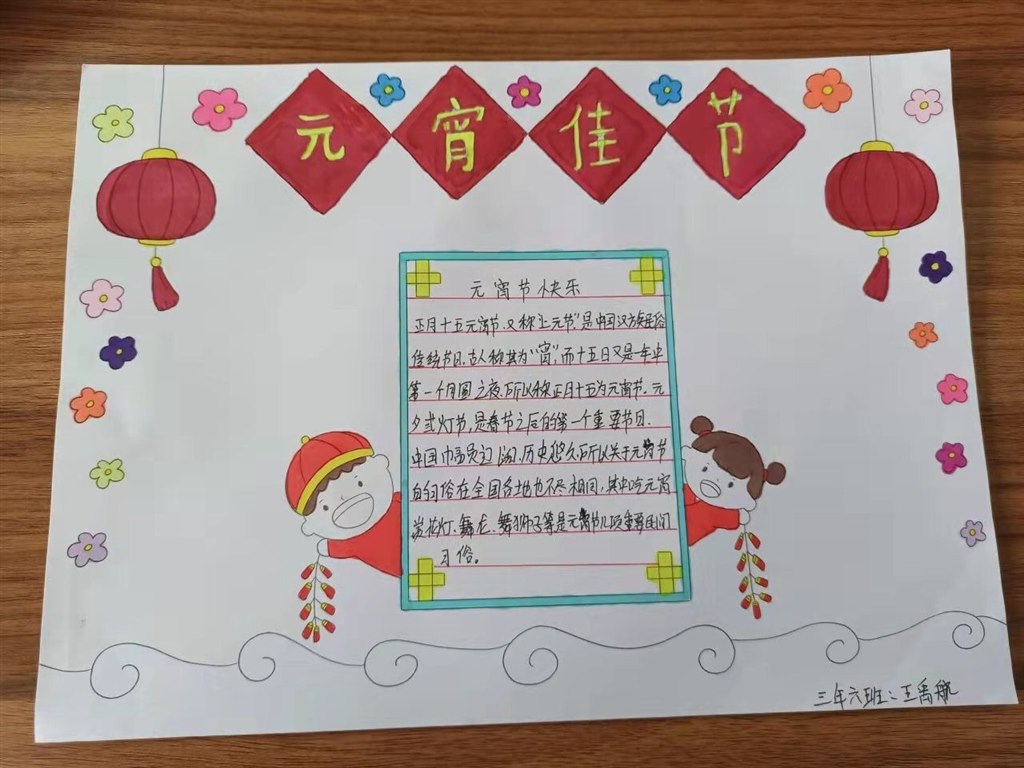 元宵佳节
元宵节快乐
正月十五元宵节.又称"上元节"是中国汉族民俗
传统节日.古人称其为"宵",而十五日又是一年中
第一个月圆之夜.所以称正月十五为元宵节.元
夕或灯节,是春节之后的第一个重要节日.
中国幅员辽阔.历史悠久.所以关于元宵节
的习俗在全国各地也不尽相同,其中吃元宵
赏花灯、舞龙、舞狮子等是元宵节几项重要民间
习俗。
三年六班:王禹航